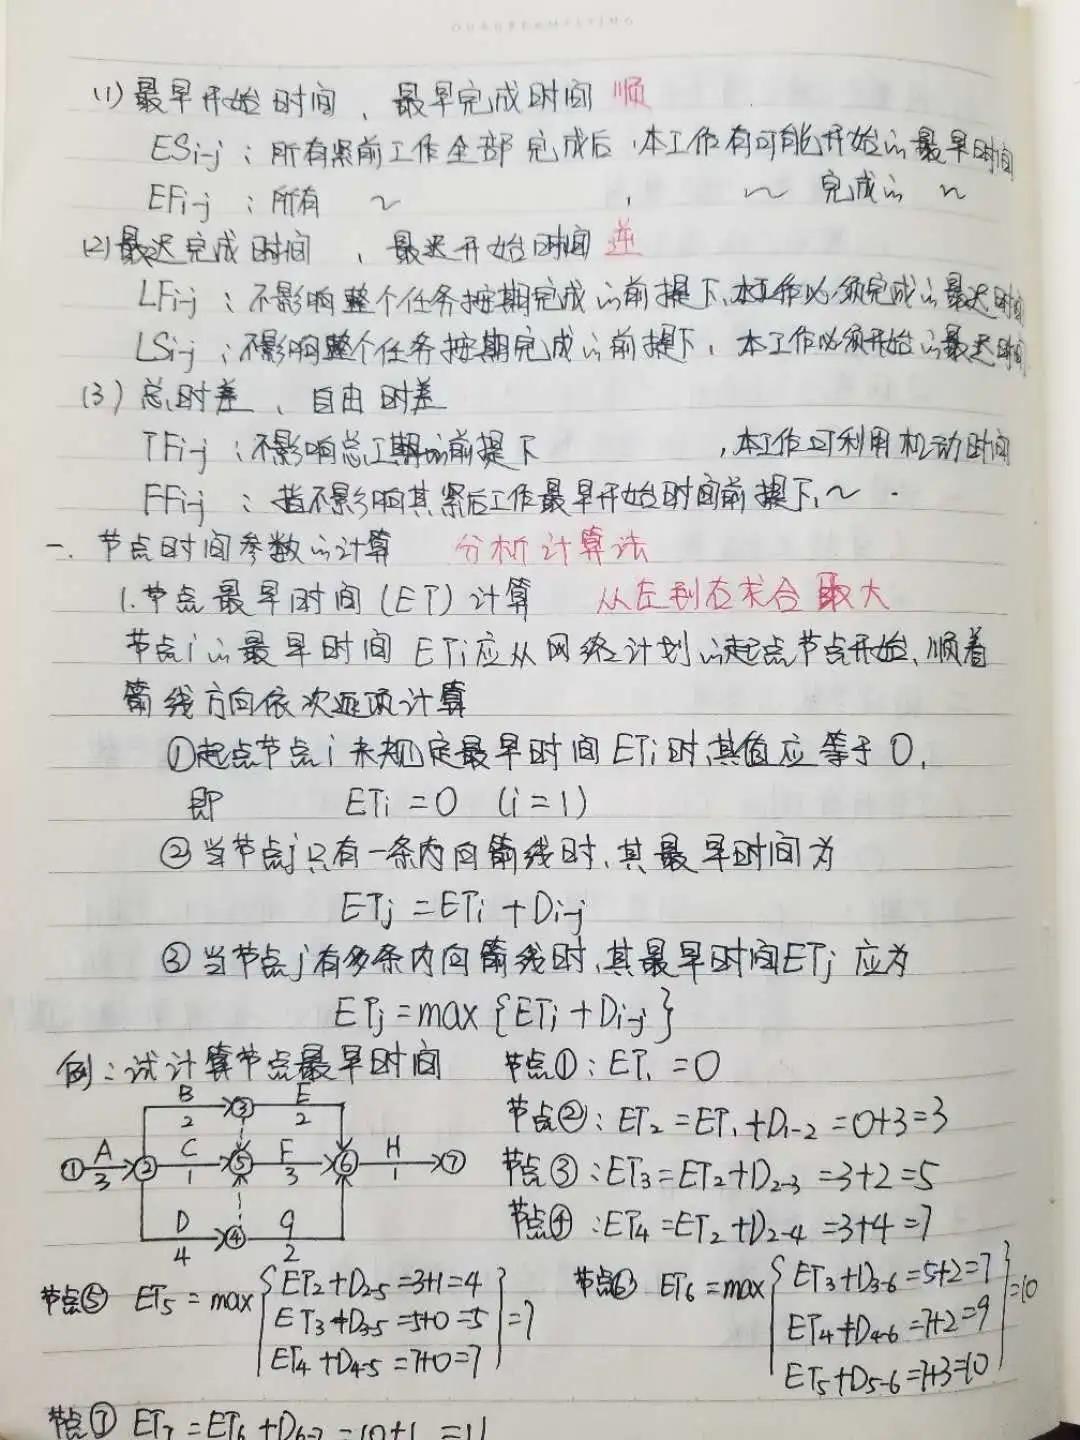 (1) 最早开始时间、最早完成时间 顺
ESi-j：所有紧前工作全部完成后,本工作有可能开始的最早时间
EFi-j：所有 ～ , ～ 完成的 ～
(2) 最迟完成时间、最迟开始时间 逆
LFi-j：不影响整个任务按期完成的前提下,本工作必须完成的最迟时间
LSi-j：不影响整个任务按期完成的前提下,本工作必须开始的最迟时间
(3) 总时差、自由时差
TFi-j：不影响总工期的前提下 ,本工作可利用机动时间
FFi-j：指不影响其紧后工作最早开始时间前提下,～.
一. 节点时间参数的计算 分析计算法
1.节点最早时间(ET)计算 从左到右求合取大
节点i的最早时间 ETi应从网络计划的起点节点开始,顺着
箭线方向依次逐项计算
①起点节点i未规定最早时间ETi时,其值应等于0,
即 ETi=0 (i=1)
②当节点j只有一条内向箭线时,其最早时间为
ETj=ETi+Di-j
③当节点j有多条内向箭线时,其最早时间ETj应为
ETj=max{ETi+Di-j}
例：试计算节点最早时间 节点①：ET1=0
B E
2 2
③
节点②：ET2=ET1+D1-2=0+3=3
A C F H
① ② ⑤ ⑥ ⑦
3 1 3 1
节点③：ET3=ET2+D2-3=3+2=5
节点④：ET4=ET2+D2-4=3+4=7
D G
④
4 2
节点⑤ ET5=max{ET2+D2-5=3+1=4
ET3+D3-5=5+0=5
ET4+D4-5=7+0=7}=7
节点⑥ ET6=max{ET3+D3-6=5+2=7
ET4+D4-6=7+2=9
ET5+D5-6=7+3=10}=10
节点⑦ ET7=ET6+D6-7=10+1=11